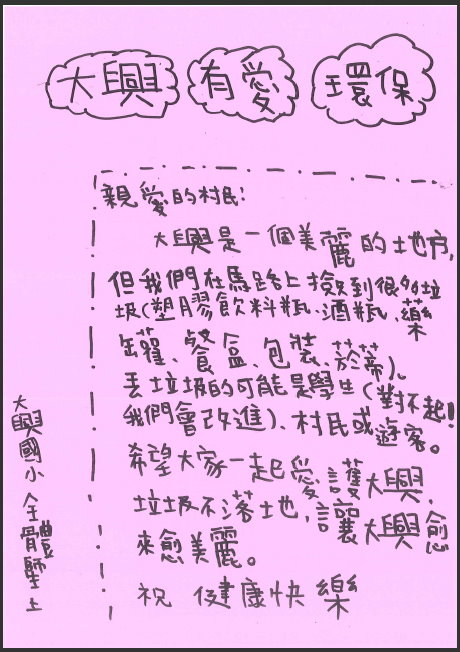 大興 有愛 環保
親愛的村民:
大興是一個美麗的地方,
但我們在馬路上撿到很多垃
圾(塑膠飲料瓶、酒瓶、藥
罐、餐盒、包裝、菸蒂)。
丟垃圾的可能是學生(對不起!
我們會改進)、村民或遊客。
希望大家一起愛護大興,
垃圾不落地,讓大興愈
來愈美麗。
祝 健康快樂
大興國小全體 上